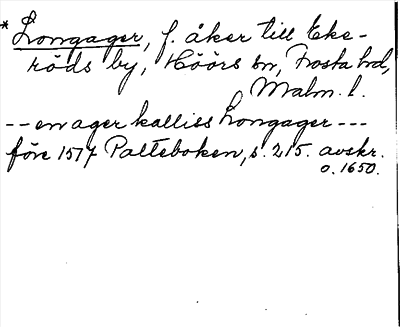 * Longager, f. åker till Eke-
röds by, Höörs sn, Frosta hd,
Malm. l.
-- en ager kalliss Longager ---
före 1517 Palteboken, s. 215. avskr.
o. 1650.